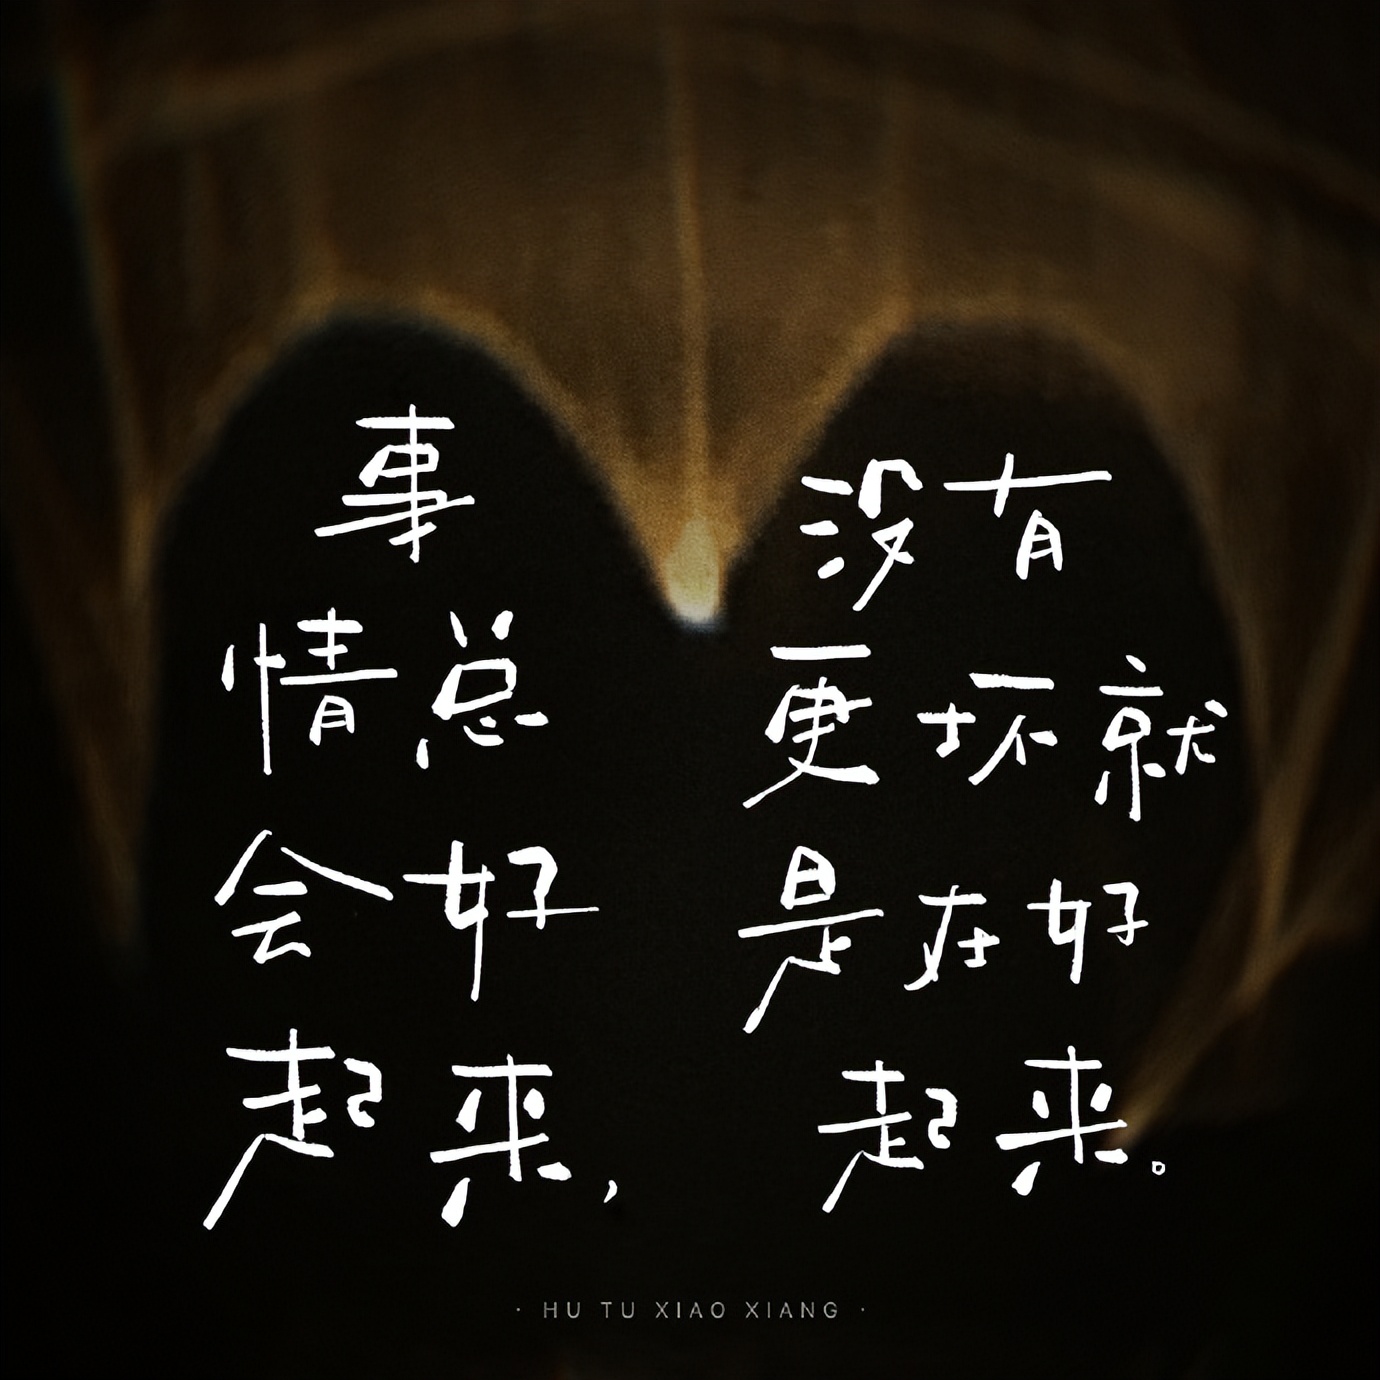 事
情总
会好
起来，
没有
更坏就
是在好
起来。
· HU TU XIAO XIANG ·